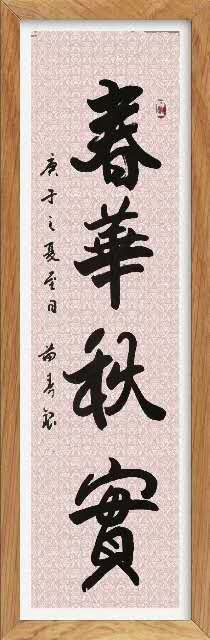 春華秋實
庚子之夏至日